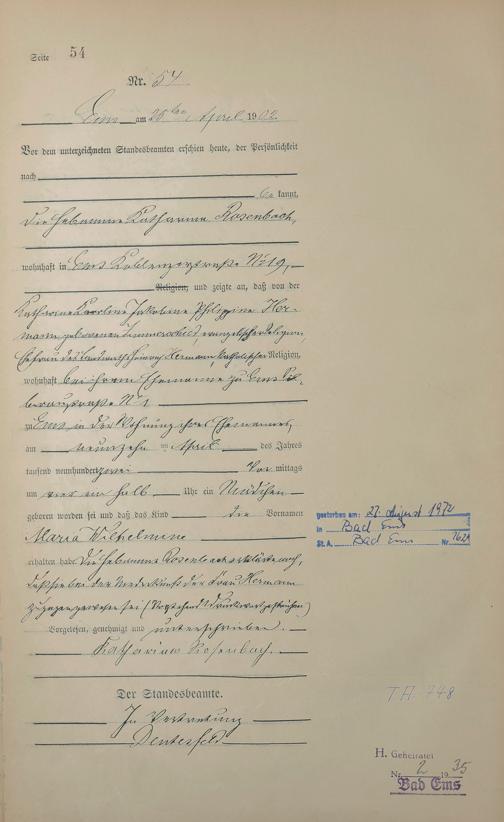 Seite 54
Nr. 54
Ems am 25ten April 1902
Vor dem unterzeichneten Standesbeamten erschien heute, der Persönlichkeit
nach
be kannt,
die Hebamme Katharina Rosenbach,
wohnhaft in Ems Koblenzerstraße № 19,
Religion, und zeigte an, daß von der
Katharina Karoline Jakobine Philippine Her-
mann geborenen Zimmerschied, evangelischer Religion,
Ehefrau des Heinrich Hermann, katholischer Religion,
wohnhaft bei ihrem Ehemanne zu Ems
№ 1
zu Ems, in der Wohnung ihres Ehemannes,
am neunzehn ten April des Jahres
tausend neunhundert zwei Vor mittags
um vier ein halb Uhr ein Mädchen
geboren worden sei und daß das Kind die Vornamen
Maria Wilhelmine
erhalten habe. Die Hebamme Rosenbach erklärte noch,
daß sie bei der Niederkunft der Frau Hermann
zugegen gewesen sei (Vorstehend 1 Druckwort gestrichen)
Vorgelesen, genehmigt und unterschrieben.
Katharina Rosenbach.
Der Standesbeamte.
In Vertretung
gestorben am: 27. August 1972
in Bad Ems
St. A. Bad Ems Nr.
T.H. 748
H. Geheiratet
Nr. 2 1935
Bad Ems